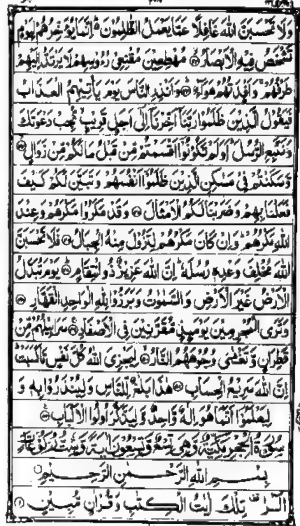 وَلَا تَحْسَبَنَّ اللّٰهَ غَافِلًا عَمَّا يَعْمَلُ الظّٰلِمُوْنَ ۬ اِنَّمَا يُؤَخِّرُهُمْ لِيَوْمٍ
تَشْخَصُ فِيْهِ الْاَبْصَارُ ۙ مُهْطِعِيْنَ مُقْنِعِيْ رُءُوْسِهِمْ لَا يَرْتَدُّ اِلَيْهِمْ
طَرْفُهُمْ ۚ وَاَفْـِٕدَتُهُمْ هَوَآءٌ ۭ وَاَنْذِرِ النَّاسَ يَوْمَ يَاْتِيْهِمُ الْعَذَابُ
فَيَقُوْلُ الَّذِيْنَ ظَلَمُوْا رَبَّنَآ اَخِّرْنَآ اِلٰٓى اَجَلٍ قَرِيْبٍ ۙ نُّجِبْ دَعْوَتَكَ
وَنَتَّبِعِ الرُّسُلَ ۭ اَوَلَمْ تَكُوْنُوْٓا اَقْسَمْتُمْ مِّنْ قَبْلُ مَا لَكُمْ مِّنْ زَوَالٍ ۙ
وَّسَكَنْتُمْ فِيْ مَسٰكِنِ الَّذِيْنَ ظَلَمُوْٓا اَنْفُسَهُمْ وَتَبَيَّنَ لَكُمْ كَيْفَ
فَعَلْنَا بِهِمْ وَضَرَبْنَا لَكُمُ الْاَمْثَالَ ۝ وَقَدْ مَكَرُوْا مَكْرَهُمْ وَعِنْدَ
اللّٰهِ مَكْرُهُمْ ۭ وَاِنْ كَانَ مَكْرُهُمْ لِتَزُوْلَ مِنْهُ الْجِبَالُ ۝ فَلَا تَحْسَبَنَّ
اللّٰهَ مُخْلِفَ وَعْدِهٖ رُسُلَهٗ ۭ اِنَّ اللّٰهَ عَزِيْزٌ ذُو انْتِقَامٍ ۭ يَوْمَ تُبَدَّلُ
الْاَرْضُ غَيْرَ الْاَرْضِ وَالسَّمٰوٰتُ وَبَرَزُوْا لِلّٰهِ الْوَاحِدِ الْقَهَّارِ ۝
وَتَرَى الْمُجْرِمِيْنَ يَوْمَىِٕذٍ مُّقَرَّنِيْنَ فِي الْاَصْفَادِ ۚ سَرَابِيْلُهُمْ مِّنْ
قَطِرَانٍ وَّتَغْشٰى وُجُوْهَهُمُ النَّارُ ۙ لِيَجْزِيَ اللّٰهُ كُلَّ نَفْسٍ مَّا كَسَبَتْ ۭ
اِنَّ اللّٰهَ سَرِيْعُ الْحِسَابِ ۝ هٰذَا بَلٰغٌ لِّلنَّاسِ وَلِيُنْذَرُوْا بِهٖ وَ
لِيَعْلَمُوْٓا اَنَّمَا هُوَ اِلٰهٌ وَّاحِدٌ وَّلِيَذَّكَّرَ اُولُوا الْاَلْبَابِ ۝
بِسْمِ اللّٰهِ الرَّحْمٰنِ الرَّحِيْمِ
الٓرٰ ۣ تِلْكَ اٰيٰتُ الْكِتٰبِ وَقُرْاٰنٍ مُّبِيْنٍ ۝